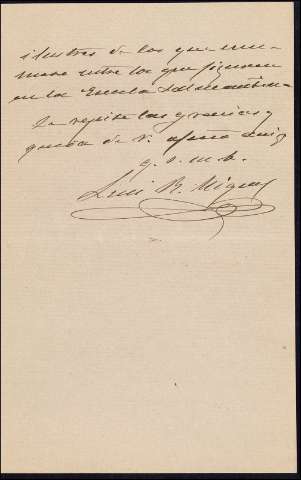 ilustres de los que
entre los que figuran
en la Escuela Salmantina.
Le repite las gracias y
queda de V. afmo. amigo
q. s. m. b.
Luis R. Miguel